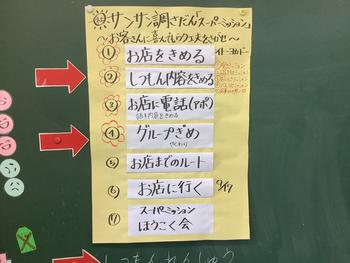 サンサン調さだん「スーパーミッション」
~お客さんに喜んでもらう工夫をさがせ~
① お店をきめる
② しつもん内容をきめる
③ お店に電話(アポ)
話す内容をきめる
④ グループぎめ
やくわり
⑤ お店までのルート
⑥ お店に行く
⑦ スーパーミッション
ほうこく会
しつもんれんしゅう